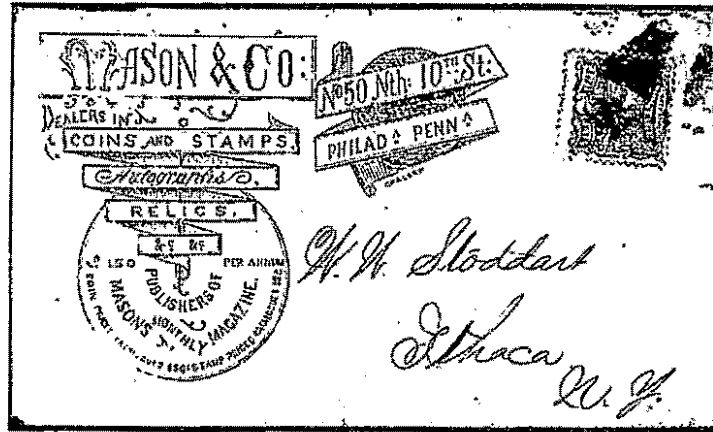 MASON & CO:
No 50 Nth: 10TH St:
PHILADA PENNA
DEALERS IN
COINS AND STAMPS,
Autographs,
RELICS,
&c &c
$1.50 PER ANNUM
PUBLISHERS OF
MASON'S MONTHLY MAGAZINE.
W. W. Stoddart
Ithaca
N. Y.